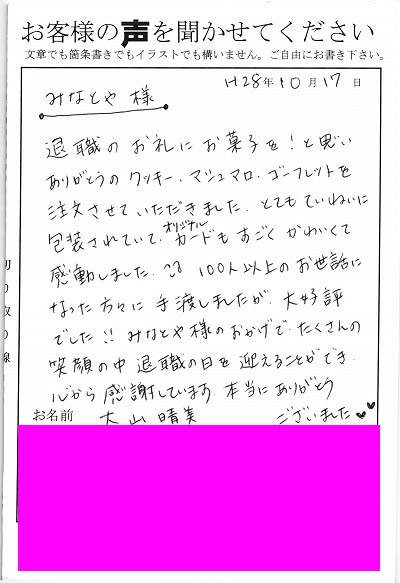 お客様の声を聞かせてください
文章でも箇条書きでもイラストでも構いません。ご自由にお書き下さい。
H28年10月17日
みなとや 様
退職のお礼にお菓子を!と思い
ありがとうのクッキー、マシュマロ、ゴーフレットを
注文させていただきました。とてもていねいに
包装されていて、オリジナルカードもすごくかわいくて
感動しました。100人以上のお世話に
なった方々に手渡しましたが、大好評
でした!!みなとや様のおかげで、たくさんの
笑顔の中退職の日を迎えることができ、
心から感謝しています。本当にありがとう
ございました
お名前 大山晴美
切り取り線